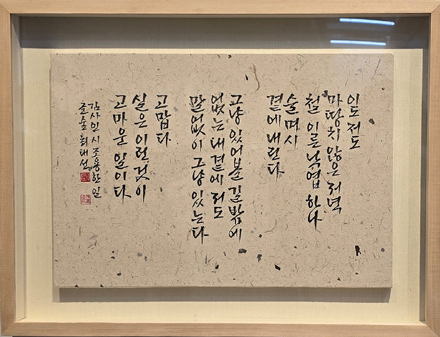 이도저도
마땅치 않은 저녁
철 이른 낙엽 하나
슬며시
곁에 내린다
그냥 있어볼 길밖에
없는 내 곁에 저도
말없이 그냥 있는다
고맙다
실은 이런 것이
고마운 일이다
김사인 시 조용한 일